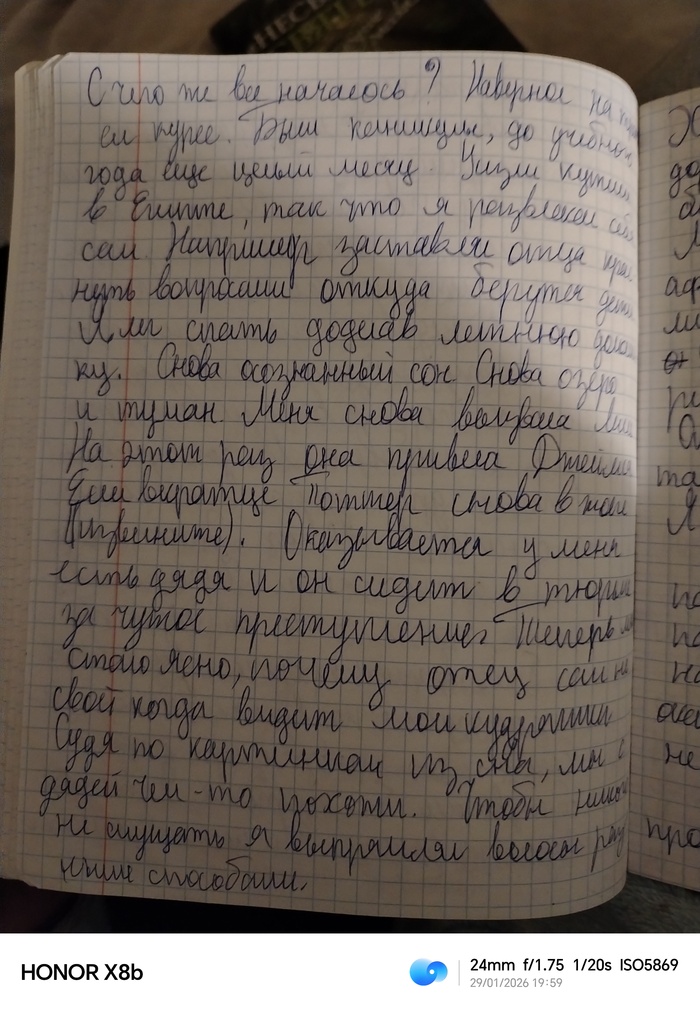 С чего же все началось? Наверное на
ем курсе. Были каникулы, до учебного
года еще целый месяц. Уизли
в Египте, так что я развлекал себя
сам. Например заставлял отца крас
неть вопросами откуда берутся дети
Я лег спать доделав летнюю
ку. Снова осознанный сон Снова озеро
и туман Меня снова вызвала
На этот раз она привела Джеймса
Если вкратце Поттер снова в
(извините). Оказывается у меня
есть дядя и он сидит в тюрьме
за чужое преступление. Теперь мне
стало ясно, почему отец сам не
свой когда видит мои кудряшки
Судя по картинкам из сна, мы с
дядей чем-то похожи. Чтобы никого
не смущать я выпрямлял волосы раз
ными способами.
до
ма
Я
не
про
HONOR X8b
24mm f/1.75 1/20s ISO5869
29/01/2026 19:59